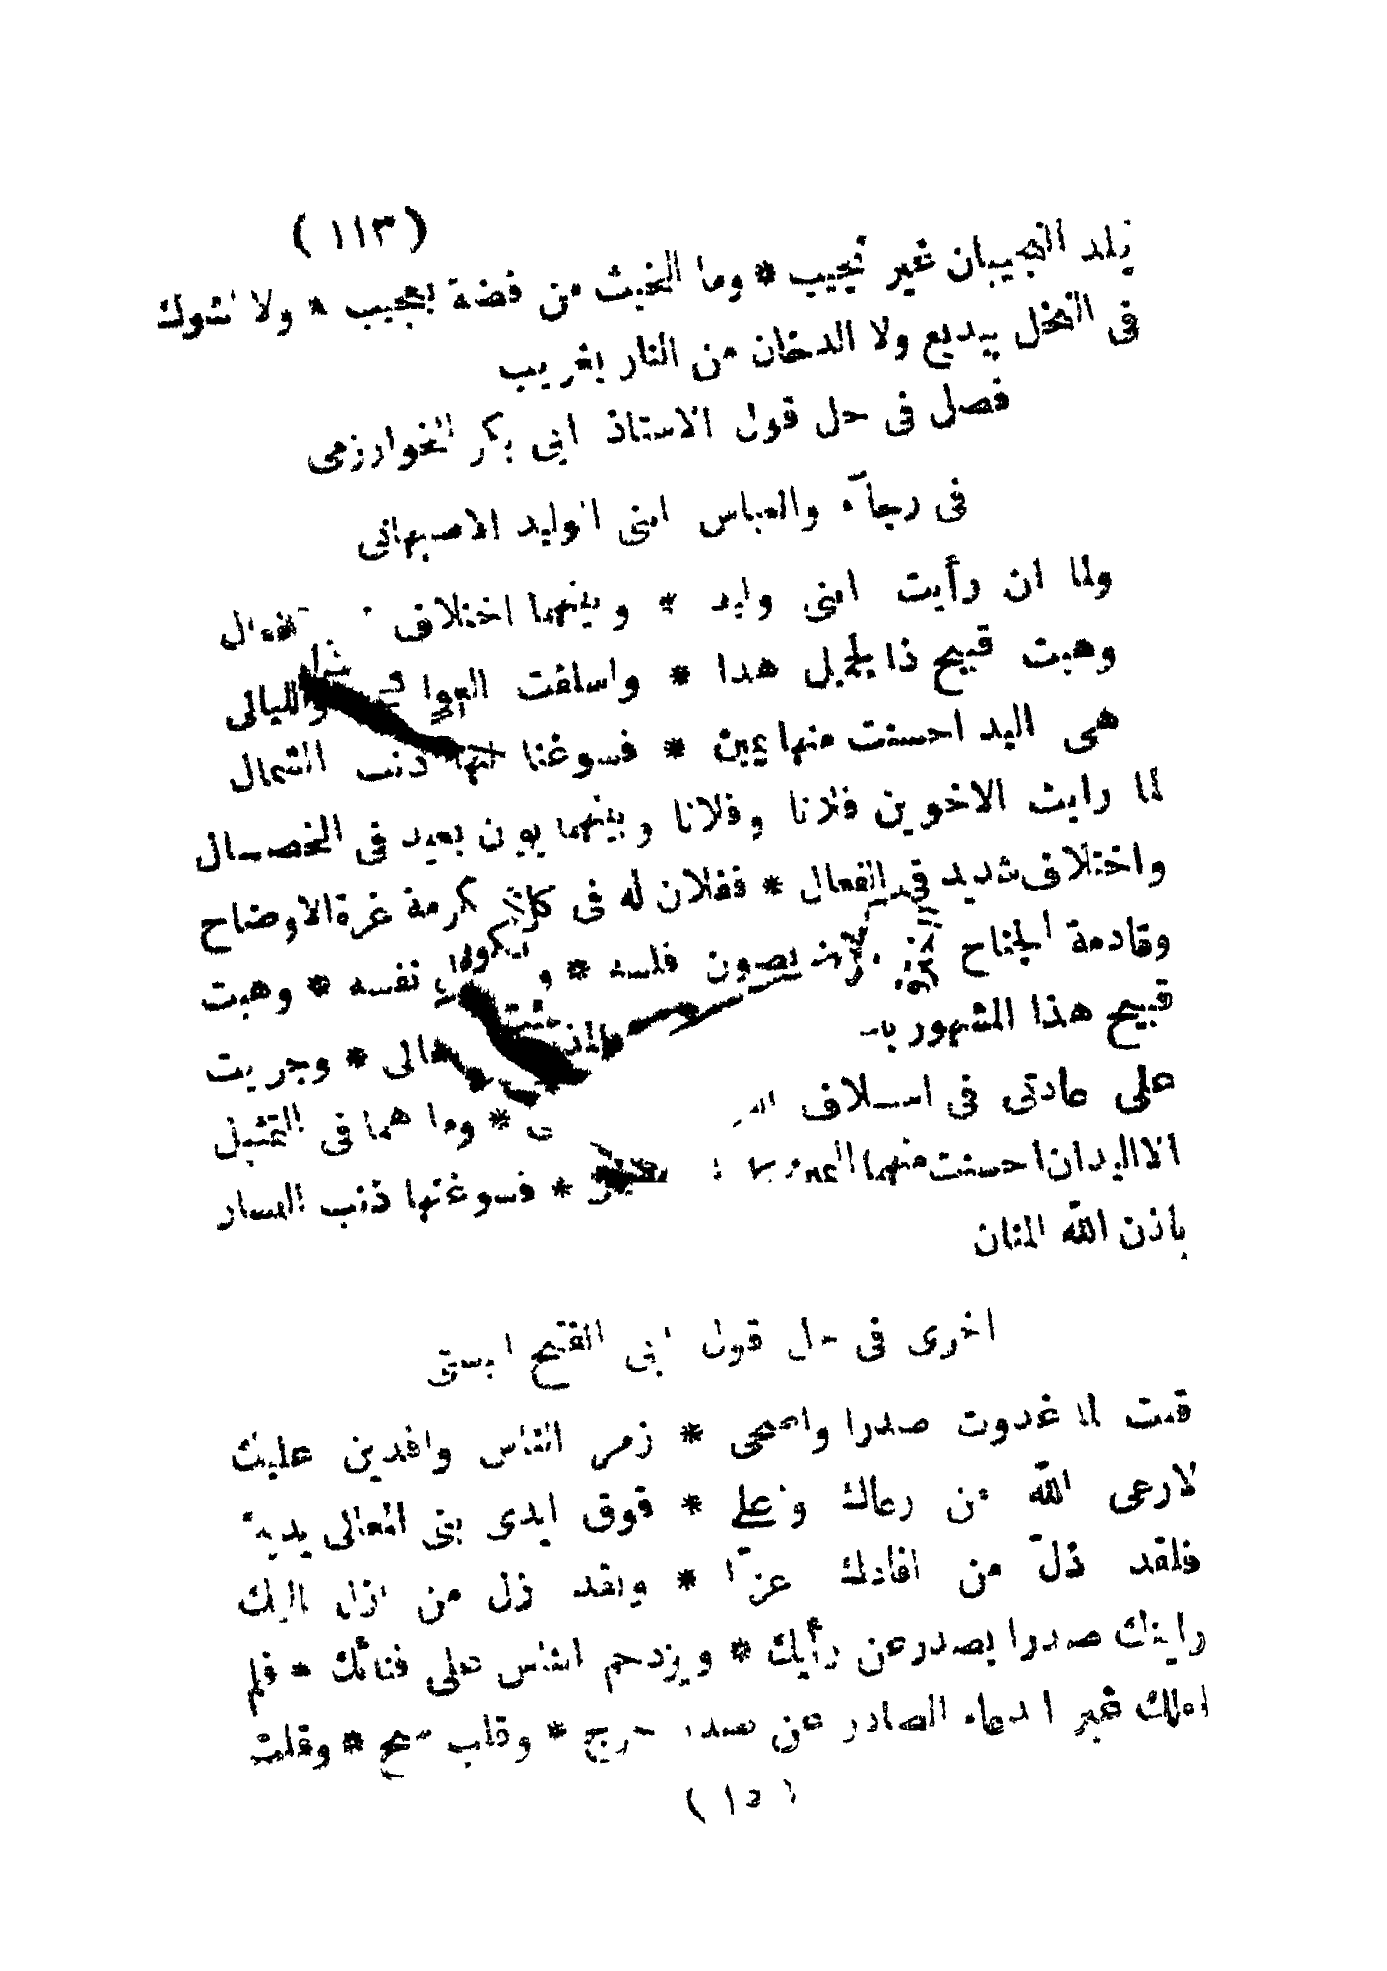 (١١٣)
يلد النجيبان غير نجيب * وما الخبث من فضة بعجيب * ولا الشوك
فى النخل ببديع ولا الدخان من النار بغريب
فصل فى حل قول الاستاذ ابى بكر الخوارزمى
فى رجآء والعباس ابنى الوليد الاصبهانى
ولما ان رأيت ابنى وليد * وبينهما اختلاف الفعال
وهبت قبيح ذا لجميل هذا * واسلفت والليالى
هى اليد احسنت منها يمين * فسوغنا لها ذنب الشمال
لما رايت الاخوين فلانا وفلانا وبينهما بون بعيد فى الخصال
واختلاف شديد فى الفعال * ففلان له فى كل مكرمة غرة الاوضاح
وقادمة الجناح يصون فلسه * نفسه * وهبت
قبيح هذا المشهور * وجريت
على عادتى فى اسلاف * وما هما فى التمثيل
الا اليدان احسنت منهما * فسوغتها ذنب اليسار
باذن الله المنان
اخرى فى حل قول ابى الفتح البستى
قلت لما غدوت صدرا واضحى * زمر الناس وافدين عليك
لارعى الله من رعاك وعلى * فوق ايدى بنى المعالى يديك
فلقد ذلّ من افادك عزّا * ولقد زل من ازل اليك
رايتك صدرا يصدر عن رأيك * ويزدحم الناس على فنائك * فلم
املك غير الدعاء الصادر عن صدر حرج * وقلب * وقلت
(١٥)